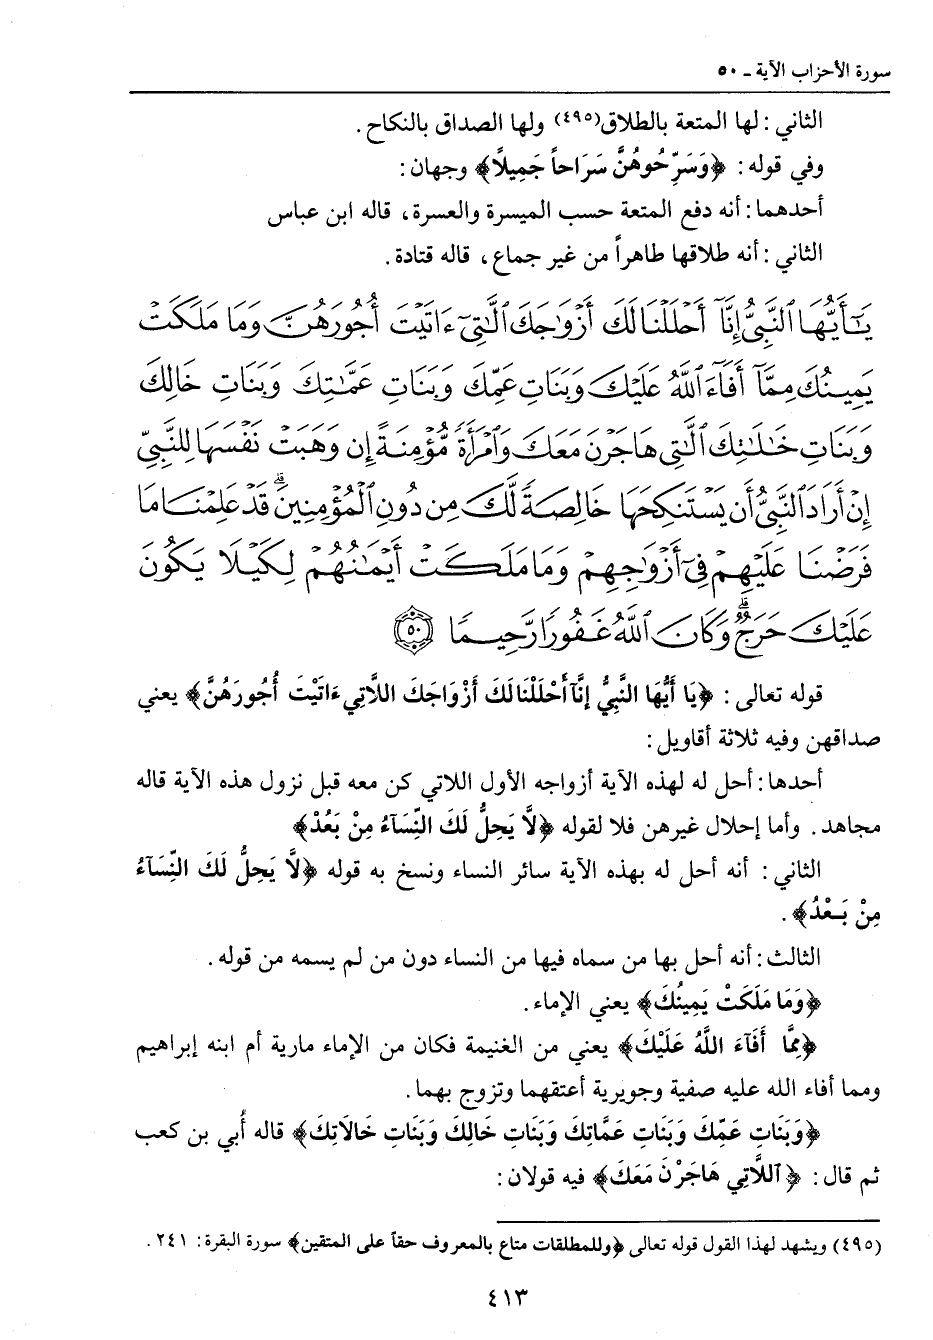 سورة الأحزاب الآية ـ ٥٠
الثاني : لها المتعة بالطلاق(٤٩٥) ولها الصداق بالنكاح .
وفي قوله : ﴿وَسَرِّحُوهُنَّ سَرَاحاً جَمِيلًا﴾ وجهان :
أحدهما : أنه دفع المتعة حسب الميسرة والعسرة ، قاله ابن عباس
الثاني : أنه طلاقها طاهراً من غير جماع ، قاله قتادة .
يَٰٓأَيُّهَا ٱلنَّبِىُّ إِنَّآ أَحْلَلْنَا لَكَ أَزْوَٰجَكَ ٱلَّٰتِىٓ ءَاتَيْتَ أُجُورَهُنَّ وَمَا مَلَكَتْ
يَمِينُكَ مِمَّآ أَفَآءَ ٱللَّهُ عَلَيْكَ وَبَنَاتِ عَمِّكَ وَبَنَاتِ عَمَّٰتِكَ وَبَنَاتِ خَالِكَ
وَبَنَاتِ خَٰلَٰتِكَ ٱلَّٰتِى هَاجَرْنَ مَعَكَ وَٱمْرَأَةً مُّؤْمِنَةً إِن وَهَبَتْ نَفْسَهَا لِلنَّبِىِّ
إِنْ أَرَادَ ٱلنَّبِىُّ أَن يَسْتَنكِحَهَا خَالِصَةً لَّكَ مِن دُونِ ٱلْمُؤْمِنِينَ ۗ قَدْ عَلِمْنَا مَا
فَرَضْنَا عَلَيْهِمْ فِىٓ أَزْوَٰجِهِمْ وَمَا مَلَكَتْ أَيْمَٰنُهُمْ لِكَيْلَا يَكُونَ
عَلَيْكَ حَرَجٌ ۗ وَكَانَ ٱللَّهُ غَفُورًا رَّحِيمًا ٥٠
قوله تعالى : ﴿يَا أَيُّهَا النَّبِيُّ إِنَّآ أَحْلَلْنَا لَكَ أَزْوَاجَكَ اللَّاتِي ءَاتَيْتَ أُجُورَهُنَّ﴾ يعني
صداقهن وفيه ثلاثة أقاويل :
أحدها : أحل له لهذه الآية أزواجه الأول اللاتي كن معه قبل نزول هذه الآية قاله
مجاهد . وأما إحلال غيرهن فلا لقوله ﴿لَّا يَحِلُّ لَكَ النِّسَآءُ مِنْ بَعْدُ﴾
الثاني : أنه أحل له بهذه الآية سائر النساء ونسخ به قوله ﴿لَّا يَحِلُّ لَكَ النِّسَآءُ
مِنْ بَعْدُ﴾ .
الثالث : أنه أحل بها من سماه فيها من النساء دون من لم يسمه من قوله .
﴿وَمَا مَلَكَتْ يَمِينُكَ﴾ يعني الإماء .
﴿مِمَّا أَفَآءَ اللَّهُ عَلَيْكَ﴾ يعني من الغنيمة فكان من الإماء مارية أم ابنه إبراهيم
ومما أفاء الله عليه صفية وجويرية أعتقهما وتزوج بهما .
﴿وَبَنَاتِ عَمِّكَ وَبَنَاتِ عَمَّاتِكَ وَبَنَاتِ خَالِكَ وَبَنَاتِ خَالَاتِكَ﴾ قاله أُبي بن كعب
ثم قال : ﴿ٱللَّاتِي هَاجَرْنَ مَعَكَ﴾ فيه قولان :
(٤٩٥) ويشهد لهذا القول قوله تعالى ﴿وللمطلقات متاع بالمعروف حقاً على المتقين﴾ سورة البقرة : ٢٤١ .
٤١٣